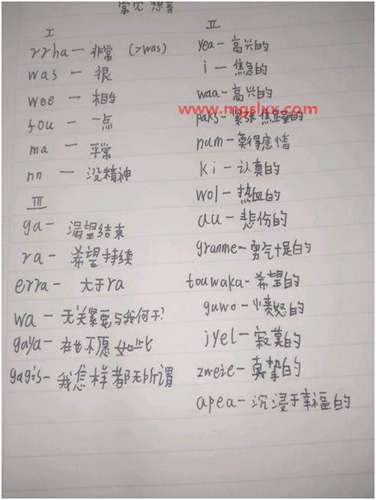 常见
I
rrha — 非常 (>was)
was — 很
wee — 相当
fou — 一点
ma — 平常
nn — 没精神
III
ga — 渴望结束
ra — 希望持续
erra — 大于ra
wa — 无关紧要与我何干?
gaya — 在也不愿如此
gagis — 我怎样都无所谓
II
yea — 高兴的
i — 焦急的
waa — 高兴的
www.mgslxx.com
paks — 紧张焦虑的
num — 莫得感情
ki — 认真的
wol — 热血的
au — 悲伤的
granme — 勇气十足的
touwaka — 希望的
guwo — 愤怒的
iyel — 寂寞的
zweie — 真挚的
apea — 沉浸于幸福的